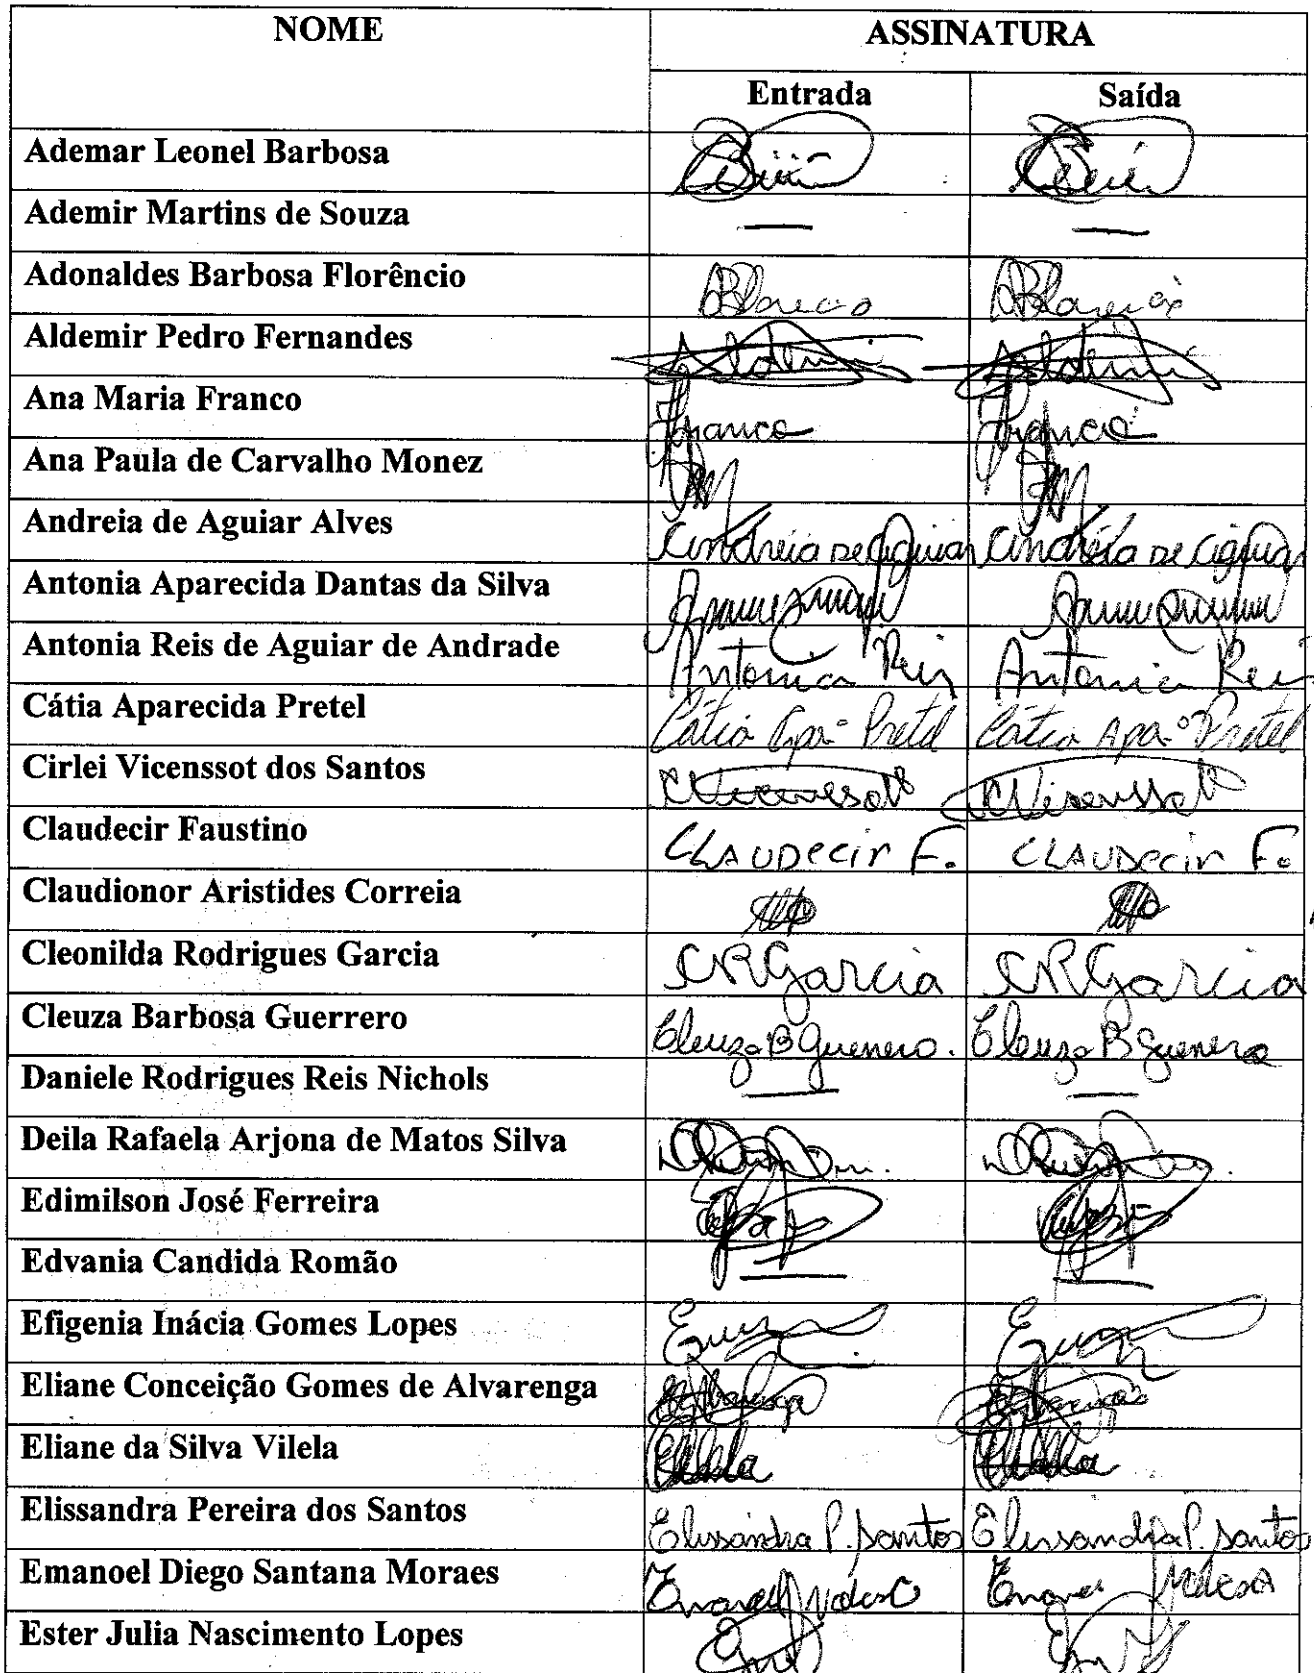 NOME ASSINATURA
Entrada Saída
Ademar Leonel Barbosa
Ademir Martins de Souza — —
Adonaldes Barbosa Florêncio
Aldemir Pedro Fernandes Aldemir Aldemir
Ana Maria Franco Franco Franco
Ana Paula de Carvalho Monez
Andreia de Aguiar Alves Andreia de Aguiar Andreia de Aguiar
Antonia Aparecida Dantas da Silva
Antonia Reis de Aguiar de Andrade Antonia Reis Antonia Reis
Cátia Aparecida Pretel Cátia Apª Pretel Cátia Apª Pretel
Cirlei Vicenssot dos Santos CVicenssot CVicenssot
Claudecir Faustino CLAUDecir F. CLAUDecir F.
Claudionor Aristides Correia
Cleonilda Rodrigues Garcia CRGarcia CRGarcia
Cleuza Barbosa Guerrero Cleuza B Guerrero. Cleuza B Guerrero
Daniele Rodrigues Reis Nichols — —
Deila Rafaela Arjona de Matos Silva
Edimilson José Ferreira
Edvania Candida Romão — —
Efigenia Inácia Gomes Lopes
Eliane Conceição Gomes de Alvarenga
Eliane da Silva Vilela
Elissandra Pereira dos Santos Elissandra P. Santos Elissandra P. Santos
Emanoel Diego Santana Moraes
Ester Julia Nascimento Lopes